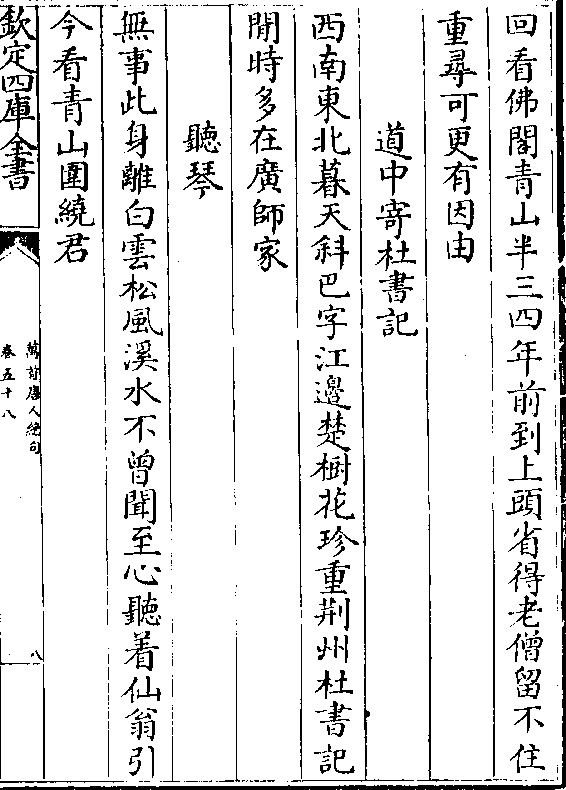 回看佛閣青山半三四年前到上頭省得老僧留不住
重尋可更有因由
道中寄杜書記
西南東北暮天斜巴字江邊楚樹花珍重荆州杜書記
閒時多在廣師家
聽琴
無事此身離白雲松風溪水不曾聞至心聽着仙翁引
今看青山圍繞君
欽定四庫全書
萬首唐人絶句
卷五十八
八